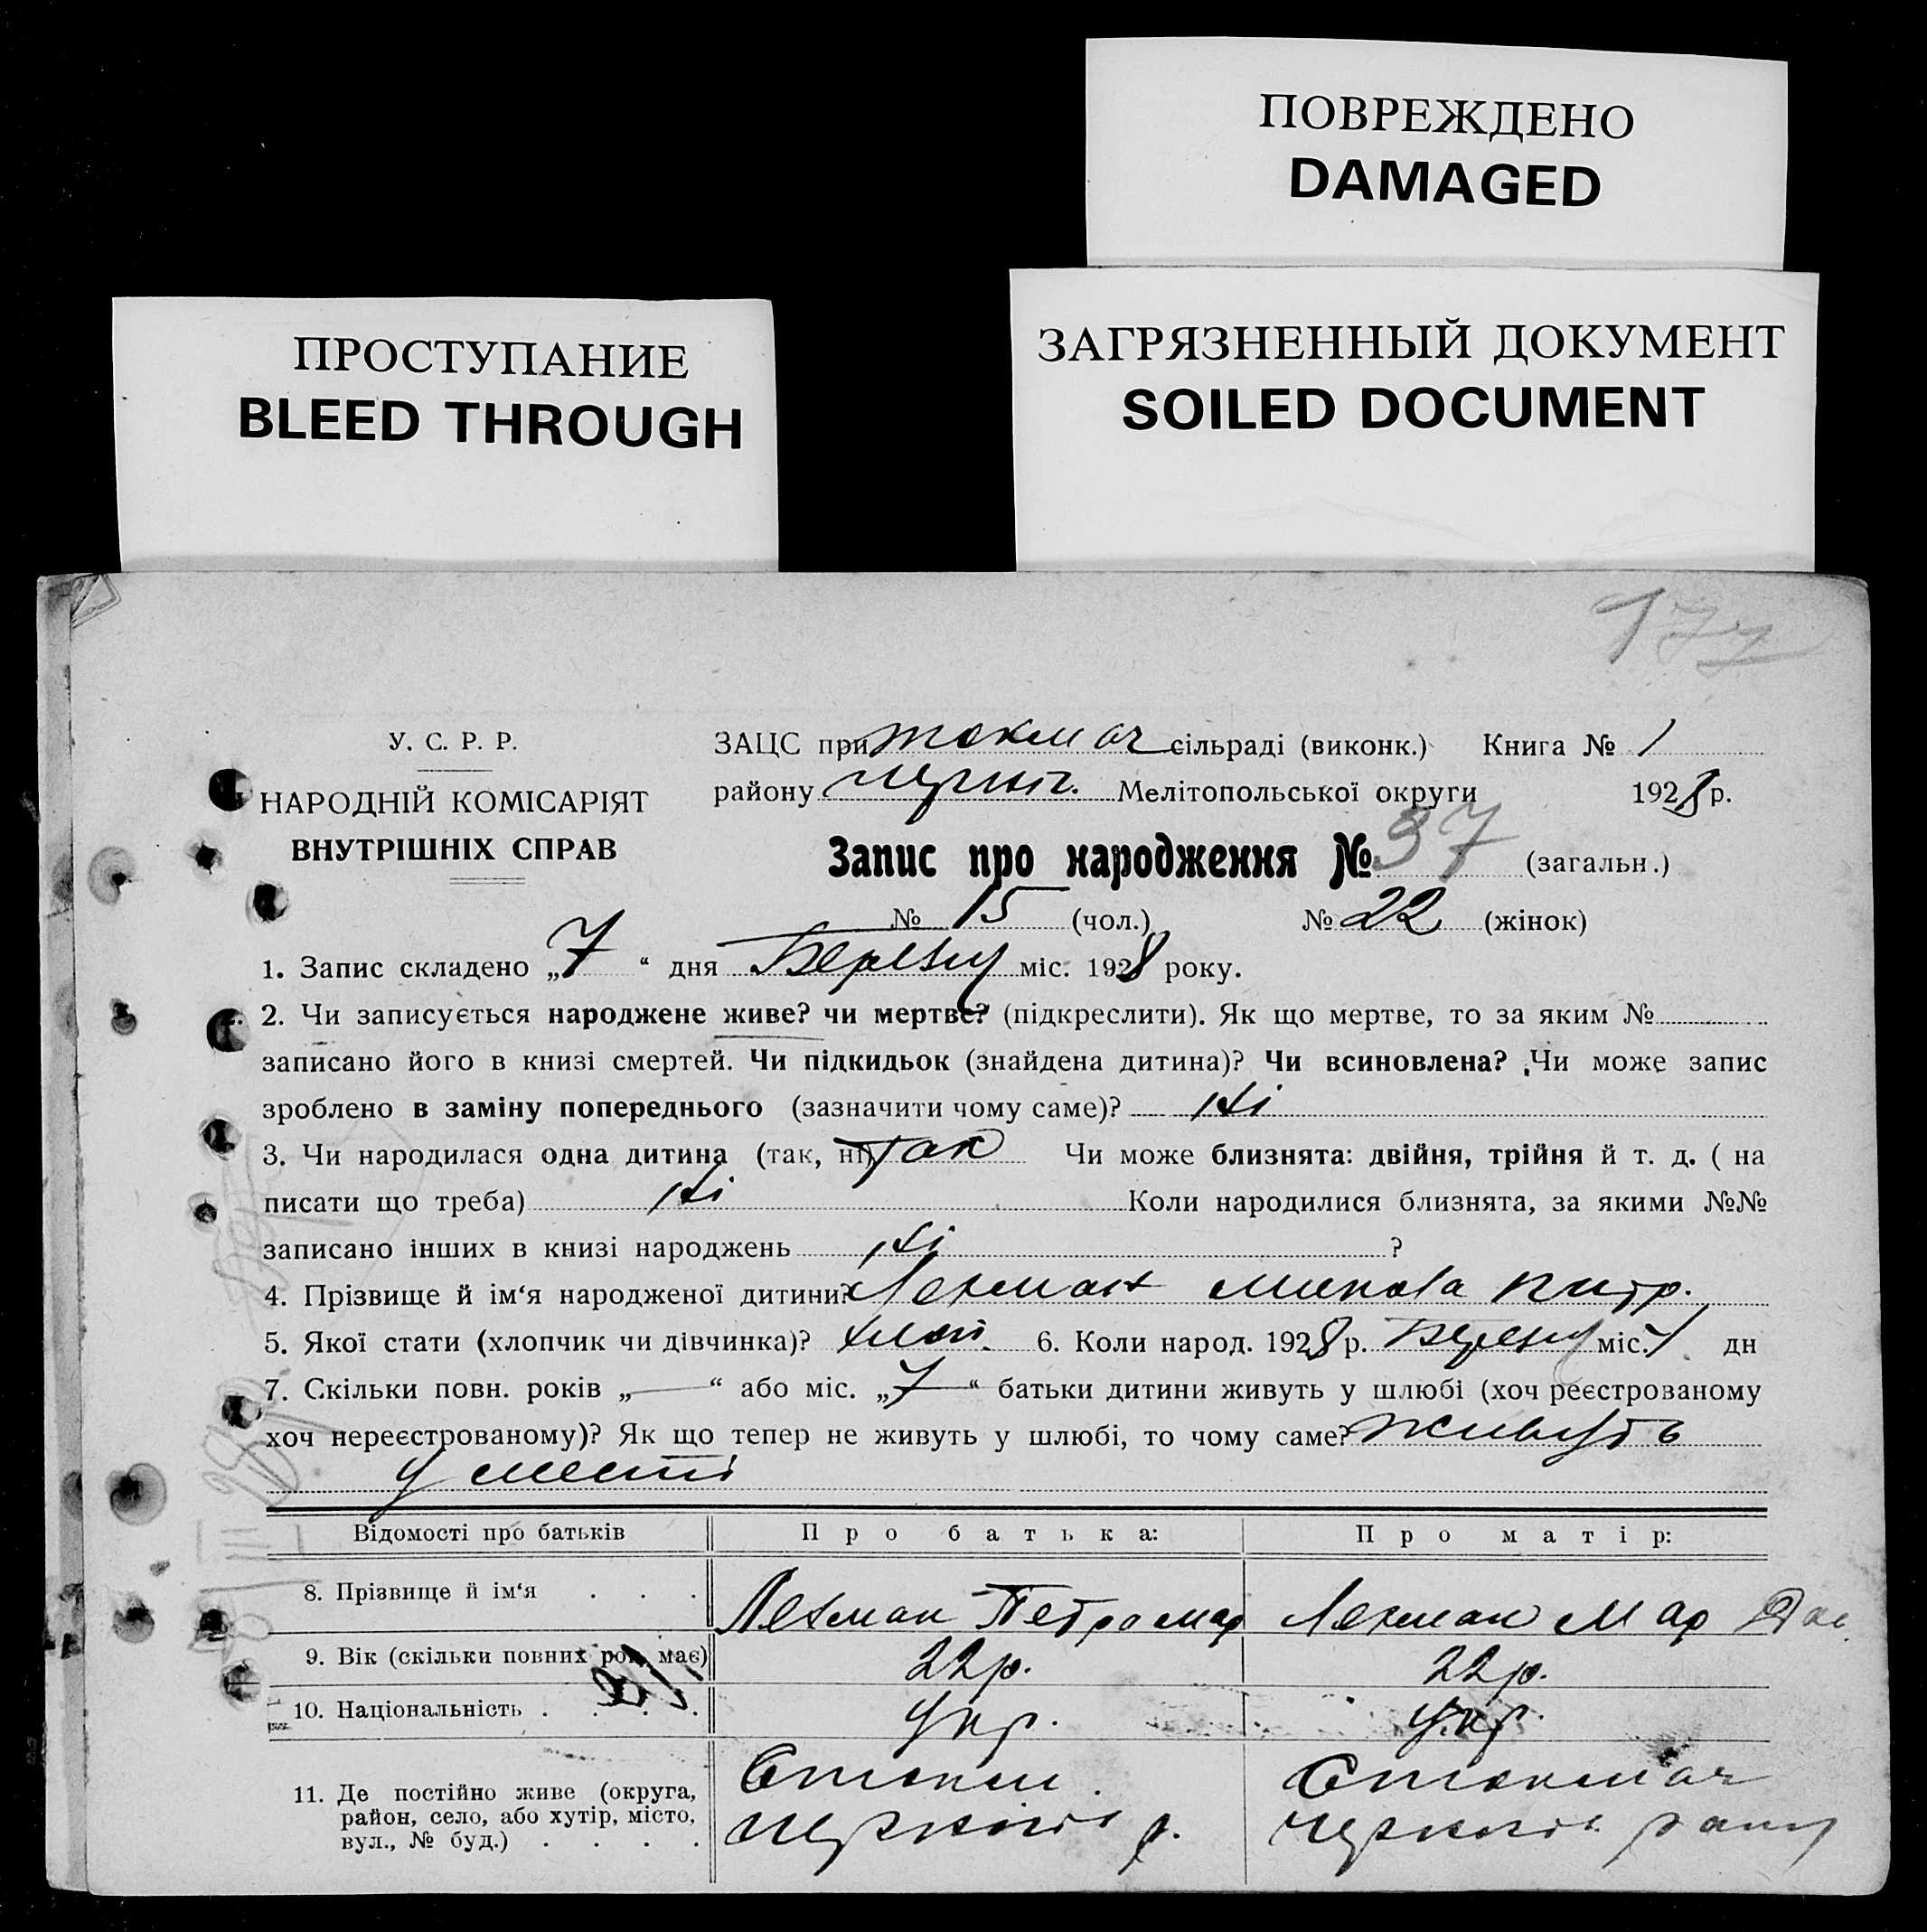 ПОВРЕЖДЕНО
DAMAGED
ПРОСТУПАНИЕ
BLEED THROUGH
ЗАГРЯЗНЕННЫЙ ДОКУМЕНТ
SOILED DOCUMENT
У. С. Р. Р.
НАРОДНІЙ КОМІСАРІЯТ
ВНУТРІШНІХ СПРАВ
ЗАЦС при токмач сільраді (виконк.) Книга № 1
району черніг. Мелітопольської округи 1928 р.
Запис про народження № 37 (загальн.)
№ 15 (чол.) № 22 (жінок)
1. Запис складено „7“ дня Березня міс. 1928 року.
2. Чи записується народжене живе? чи мертве? (підкреслити). Як що мертве, то за яким №
записано його в книзі смертей. Чи підкидьок (знайдена дитина)? Чи всиновлена? Чи може запис
зроблено в заміну попереднього (зазначити чому саме)? Ні
3. Чи народилася одна дитина (так, ні) Так Чи може близнята: двійня, трійня й т. д. ( на
писати що треба) Ні Коли народилися близнята, за якими №№
записано інших в книзі народжень Ні ?
4. Прізвище й ім‘я народженої дитини? Лехман Микола Питр.
5. Якої стати (хлопчик чи дівчинка)? 6. Коли народ. 1928 р. Березня міс. 1 дн
7. Скільки повн. років „—“ або міс. „7“ батьки дитини живуть у шлюбі (хоч реєстрованому
хоч нереєстрованому)? Як що тепер не живуть у шлюбі, то чому саме? живуть
у
Відомості про батьків Про батька: Про матір:
8. Прізвище й ім‘я . . . Лехман Петро мар Лехман Мар
9. Вік (скільки повних рок. має) 22 р. 22 р.
10. Національність . . . . Укр. Укр.
11. Де постійно живе (округа,
район, село, або хутір, місто,
вул., № буд.) . . . .
Стокм. Стокмач
черніг р. черніг. району